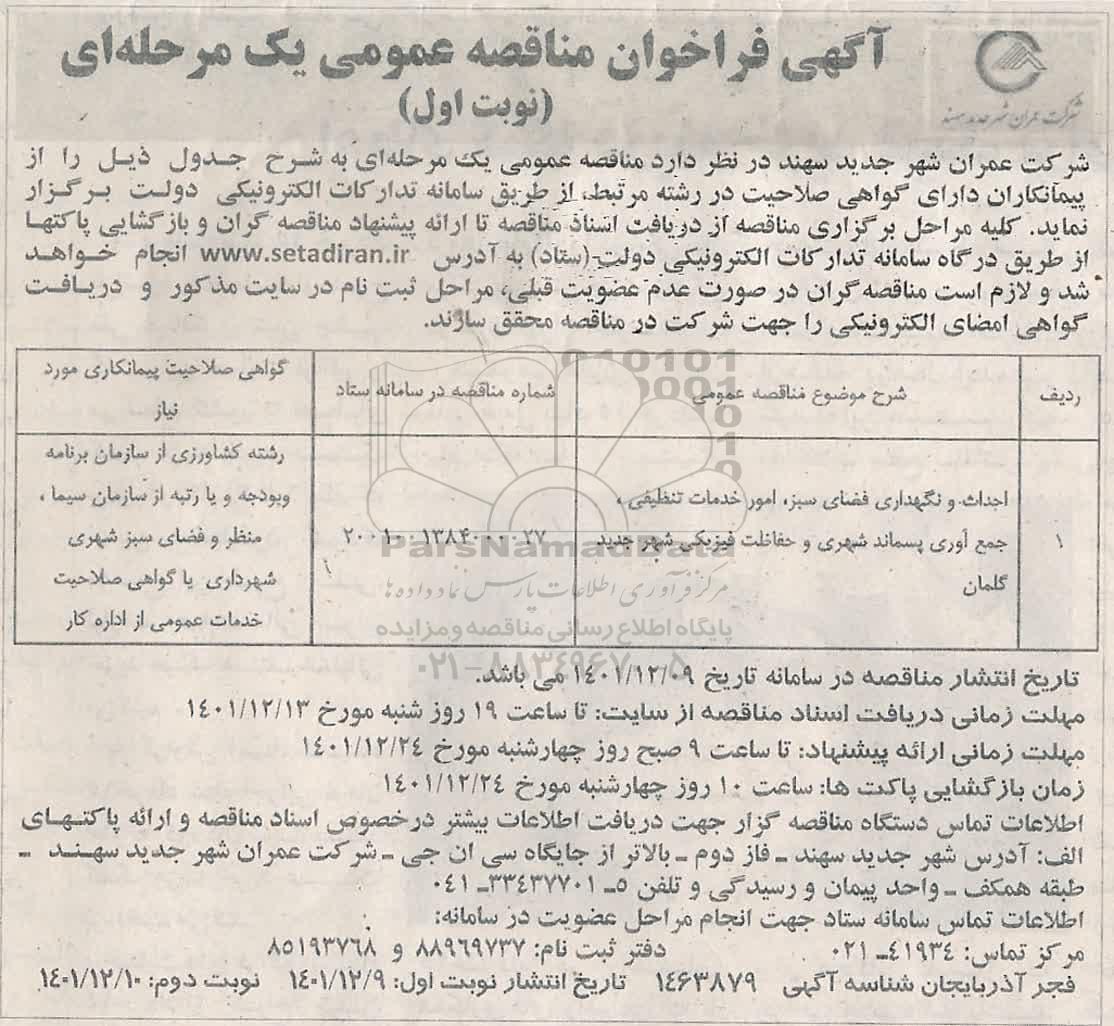 آگهی فراخوان مناقصه عمومی یک مرحله‌ای
(نوبت اول)
شرکت عمران شهر جدید سهند
شرکت عمران شهر جدید سهند در نظر دارد مناقصه عمومی یک مرحله‌ای به شرح جدول ذیل را از
پیمانکاران دارای گواهی صلاحیت در رشته مرتبط، از طریق سامانه تدارکات الکترونیکی دولت برگزار
نماید. کلیه مراحل برگزاری مناقصه از دریافت اسناد مناقصه تا ارائه پیشنهاد مناقصه گران و بازگشایی پاکتها
از طریق درگاه سامانه تدارکات الکترونیکی دولت (ستاد) به آدرس www.setadiran.ir انجام خواهد
شد و لازم است مناقصه گران در صورت عدم عضویت قبلی، مراحل ثبت نام در سایت مذکور و دریافت
گواهی امضای الکترونیکی را جهت شرکت در مناقصه محقق سازند.
ردیف
شرح موضوع مناقصه عمومی
شماره مناقصه در سامانه ستاد
گواهی صلاحیت پیمانکاری مورد
نیاز
۱
احداث و نگهداری فضای سبز، امور خدمات تنظیفی ،
جمع آوری پسماند شهری و حفاظت فیزیکی شهر جدید
گلمان
۲۰۰۱۰۰۱۳۸۴۰۰۰۰۲۷
رشته کشاورزی از سازمان برنامه
وبودجه و یا رتبه از سازمان سیما ،
منظر و فضای سبز شهری
شهرداری یا گواهی صلاحیت
خدمات عمومی از اداره کار
ParsNamadData
مرکز فرآوری اطلاعات پارس نماد داده ها
پایگاه اطلاع رسانی مناقصه و مزایده
۰۲۱-۸۸۳۴۹۶۷۰-۵
تاریخ انتشار مناقصه در سامانه تاریخ ۱۴۰۱/۱۲/۰۹ می باشد.
مهلت زمانی دریافت اسناد مناقصه از سایت: تا ساعت ۱۹ روز شنبه مورخ ۱۴۰۱/۱۲/۱۳
مهلت زمانی ارائه پیشنهاد: تا ساعت ۹ صبح روز چهارشنبه مورخ ۱۴۰۱/۱۲/۲۴
زمان بازگشایی پاکت ها: ساعت ۱۰ روز چهارشنبه مورخ ۱۴۰۱/۱۲/۲۴
اطلاعات تماس دستگاه مناقصه گزار جهت دریافت اطلاعات بیشتر درخصوص اسناد مناقصه و ارائه پاکتهای
الف: آدرس شهر جدید سهند ـ فاز دوم ـ بالاتر از جایگاه سی ان جی ـ شرکت عمران شهر جدید سهند ـ
طبقه همکف ـ واحد پیمان و رسیدگی و تلفن ۵ـ ۳۳۴۳۷۷۰۱ـ ۰۴۱
اطلاعات تماس سامانه ستاد جهت انجام مراحل عضویت در سامانه:
مرکز تماس: ۴۱۹۳۴ـ ۰۲۱ دفتر ثبت نام: ۸۸۹۶۹۷۳۷ و ۸۵۱۹۳۷۶۸
فجر آذربایجان شناسه آگهی ۱۴۶۳۸۷۹ تاریخ انتشار نوبت اول: ۱۴۰۱/۱۲/۹ نوبت دوم: ۱۴۰۱/۱۲/۱۰